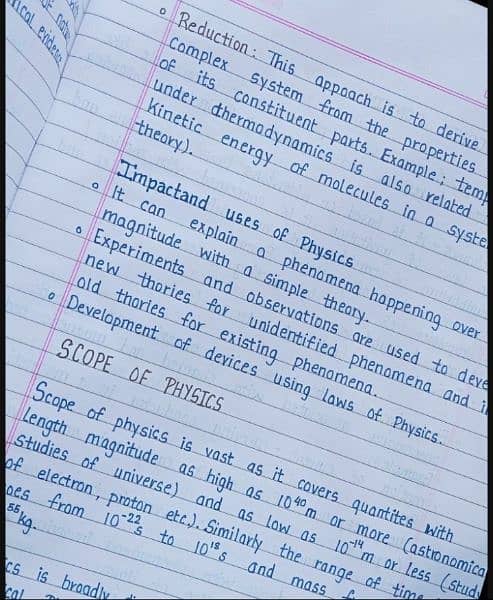 ical evidenc
◦ Reduction: This appoach is to derive
Complex system from the properties
of its constituent parts. Example; temp
under thermodynamics is also related
kinetic energy of molecules in a syste
theory).
Impactand uses of Physics
◦ It can explain a phenomena happening over
magnitude with a simple theory.
◦ Experiments and observations are used to deve
new thories for unidentified phenomena and i
old thories for existing phenomena.
◦ Development of devices using laws of Physics.
SCOPE OF PHYSICS
Scope of physics is vast as it covers quantites with
length magnitude as high as 10⁴⁰m or more (astronomica
studies of universe) and as low as 10⁻¹⁴m or less (study
of electron, proton etc.). Similarly the range of time
oes from 10⁻²²s to 10¹⁸s and mass f
⁵⁵kg.
cs is broadly